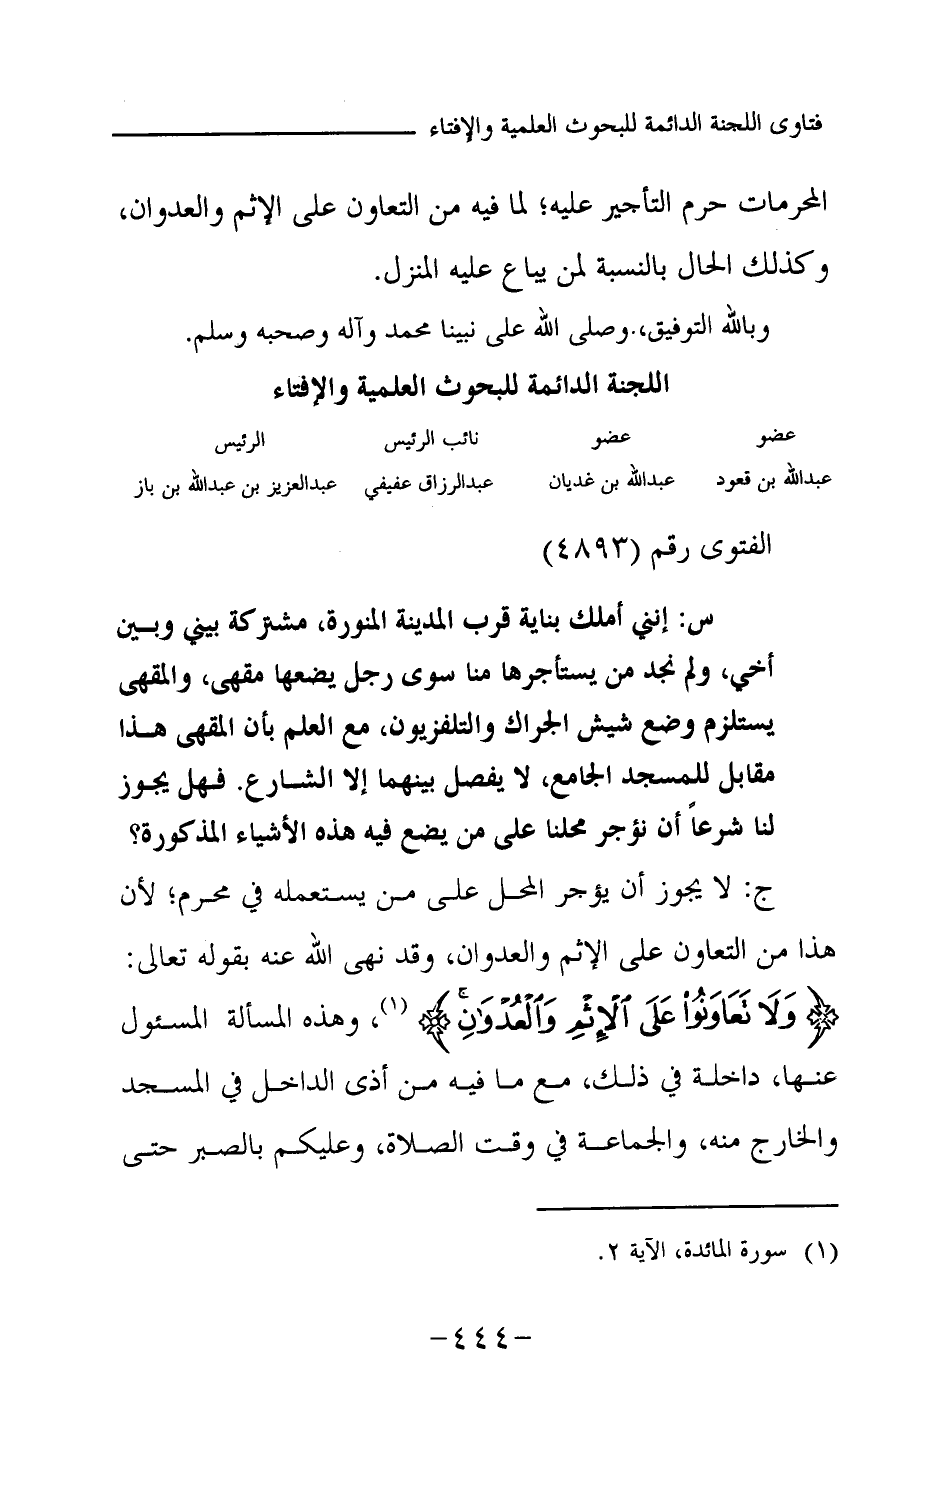 فتاوى اللجنة الدائمة للبحوث العلمية والإفتاء
المحرمات حرم التأجير عليه؛ لما فيه من التعاون على الإثم والعدوان،
وكذلك الحال بالنسبة لمن يباع عليه المنزل.
وبالله التوفيق،.وصلى الله على نبينا محمد وآله وصحبه وسلم.
اللجنة الدائمة للبحوث العلمية والإفتاء
عضو عضو نائب الرئيس الرئيس
عبدالله بن قعود عبدالله بن غديان عبدالرزاق عفيفي عبدالعزيز بن عبدالله بن باز
الفتوى رقم (٤٨٩٣)
س: إنني أملك بناية قرب المدينة المنورة، مشتركة بيني وبين
أخي، ولم نجد من يستأجرها منا سوى رجل يضعها مقهى، والمقهى
يستلزم وضع شيش الجراك والتلفزيون، مع العلم بأن المقهى هذا
مقابل للمسجد الجامع، لا يفصل بينهما إلا الشارع. فهل يجوز
لنا شرعاً أن نؤجر محلنا على من يضع فيه هذه الأشياء المذكورة؟
ج: لا يجوز أن يؤجر المحل على من يستعمله في محرم؛ لأن
هذا من التعاون على الإثم والعدوان، وقد نهى الله عنه بقوله تعالى:
﴿وَلَا تَعَاوَنُوا۟ عَلَى ٱلْإِثْمِ وَٱلْعُدْوَٰنِۚ﴾ (١)، وهذه المسألة المسئول
عنها، داخلة في ذلك، مع ما فيه من أذى الداخل في المسجد
والخارج منه، والجماعة في وقت الصلاة، وعليكم بالصبر حتى
(١) سورة المائدة، الآية ٢.
-٤٤٤-